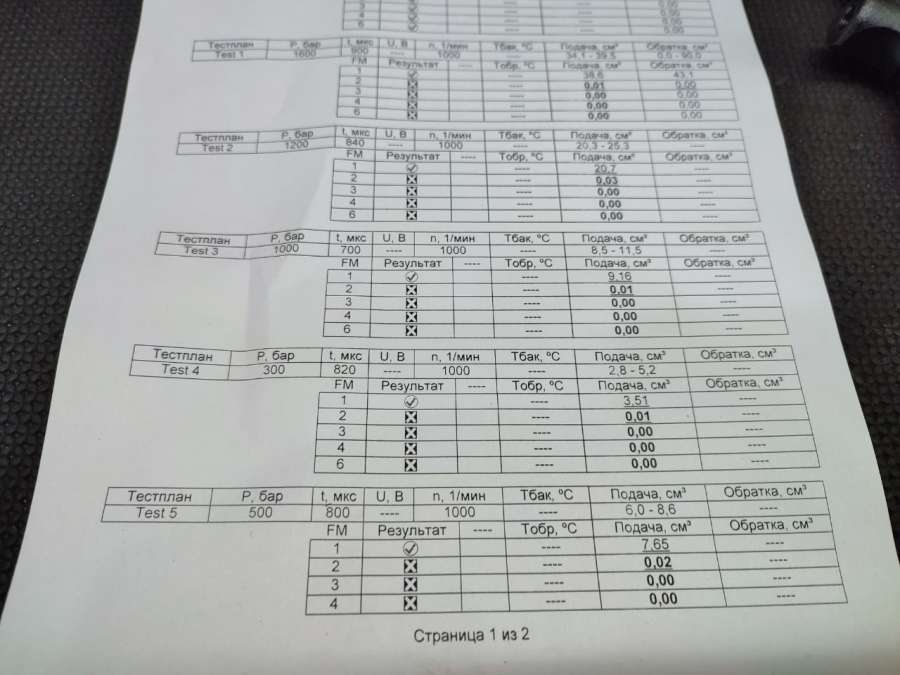 3 ---- ----
4 ---- 0.00
6 ---- 0.00
Тестплан P, бар t, мкс U, В n, 1/мин Тбак, ºC Подача, см³ Обратка, см³
Test 1 1600 900 ---- 1000 ---- 34,1 - 39,5 0,0 - 90,0
FM Результат ---- Тобр, ºC Подача, см³ Обратка, см³
1 ---- 38,6 43,1
2 ---- 0,01 0,00
3 ---- 0,00 0,00
4 ---- 0,00 0,00
6 ---- 0,00 0,00
Тестплан P, бар t, мкс U, В n, 1/мин Тбак, ºC Подача, см³ Обратка, см³
Test 2 1200 840 ---- 1000 ---- 20,3 - 25,3 ----
FM Результат ---- Тобр, ºC Подача, см³ Обратка, см³
1 ---- 20,7 ----
2 ---- 0,03 ----
3 ---- 0,00 ----
4 ---- 0,00 ----
6 ---- 0,00 ----
Тестплан P, бар t, мкс U, В n, 1/мин Тбак, ºC Подача, см³ Обратка, см³
Test 3 1000 700 ---- 1000 ---- 8,5 - 11,5 ----
FM Результат ---- Тобр, ºC Подача, см³ Обратка, см³
1 ---- 9,16 ----
2 ---- 0,01 ----
3 ---- 0,00 ----
4 ---- 0,00 ----
6 ---- 0,00 ----
Тестплан P, бар t, мкс U, В n, 1/мин Тбак, ºC Подача, см³ Обратка, см³
Test 4 300 820 ---- 1000 ---- 2,8 - 5,2 ----
FM Результат ---- Тобр, ºC Подача, см³ Обратка, см³
1 ---- 3,51 ----
2 ---- 0,01 ----
3 ---- 0,00 ----
4 ---- 0,00 ----
6 ---- 0,00 ----
Тестплан P, бар t, мкс U, В n, 1/мин Тбак, ºC Подача, см³ Обратка, см³
Test 5 500 800 ---- 1000 ---- 6,0 - 8,6 ----
FM Результат ---- Тобр, ºC Подача, см³ Обратка, см³
1 ---- 7,65 ----
2 ---- 0,02 ----
3 ---- 0,00 ----
4 ---- 0,00 ----
Страница 1 из 2